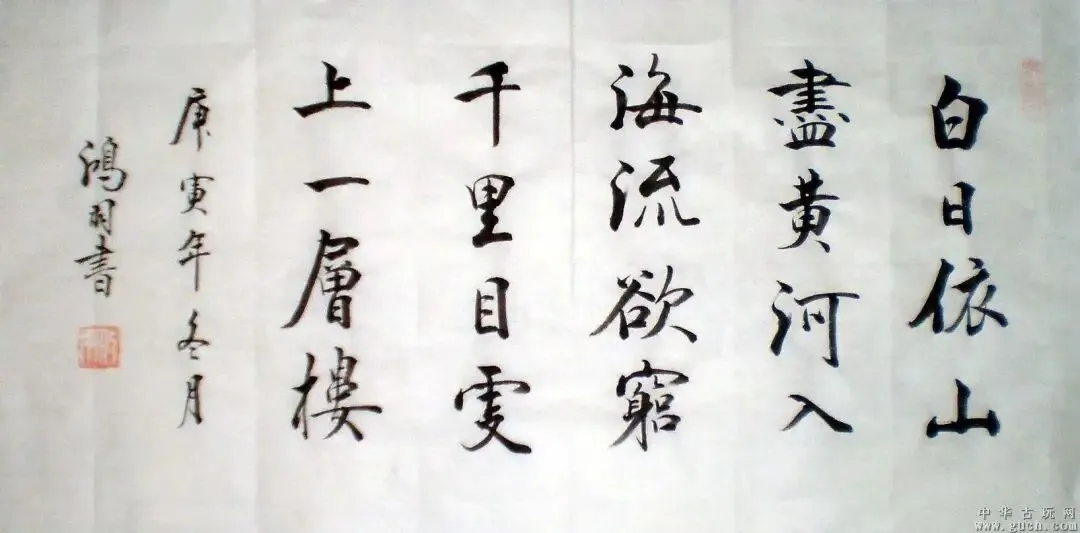 白日依山
盡黄河入
海流欲窮
千里目更
上一層樓
庚寅年冬月
鴻羽書
中华古玩网
www.gucn.com